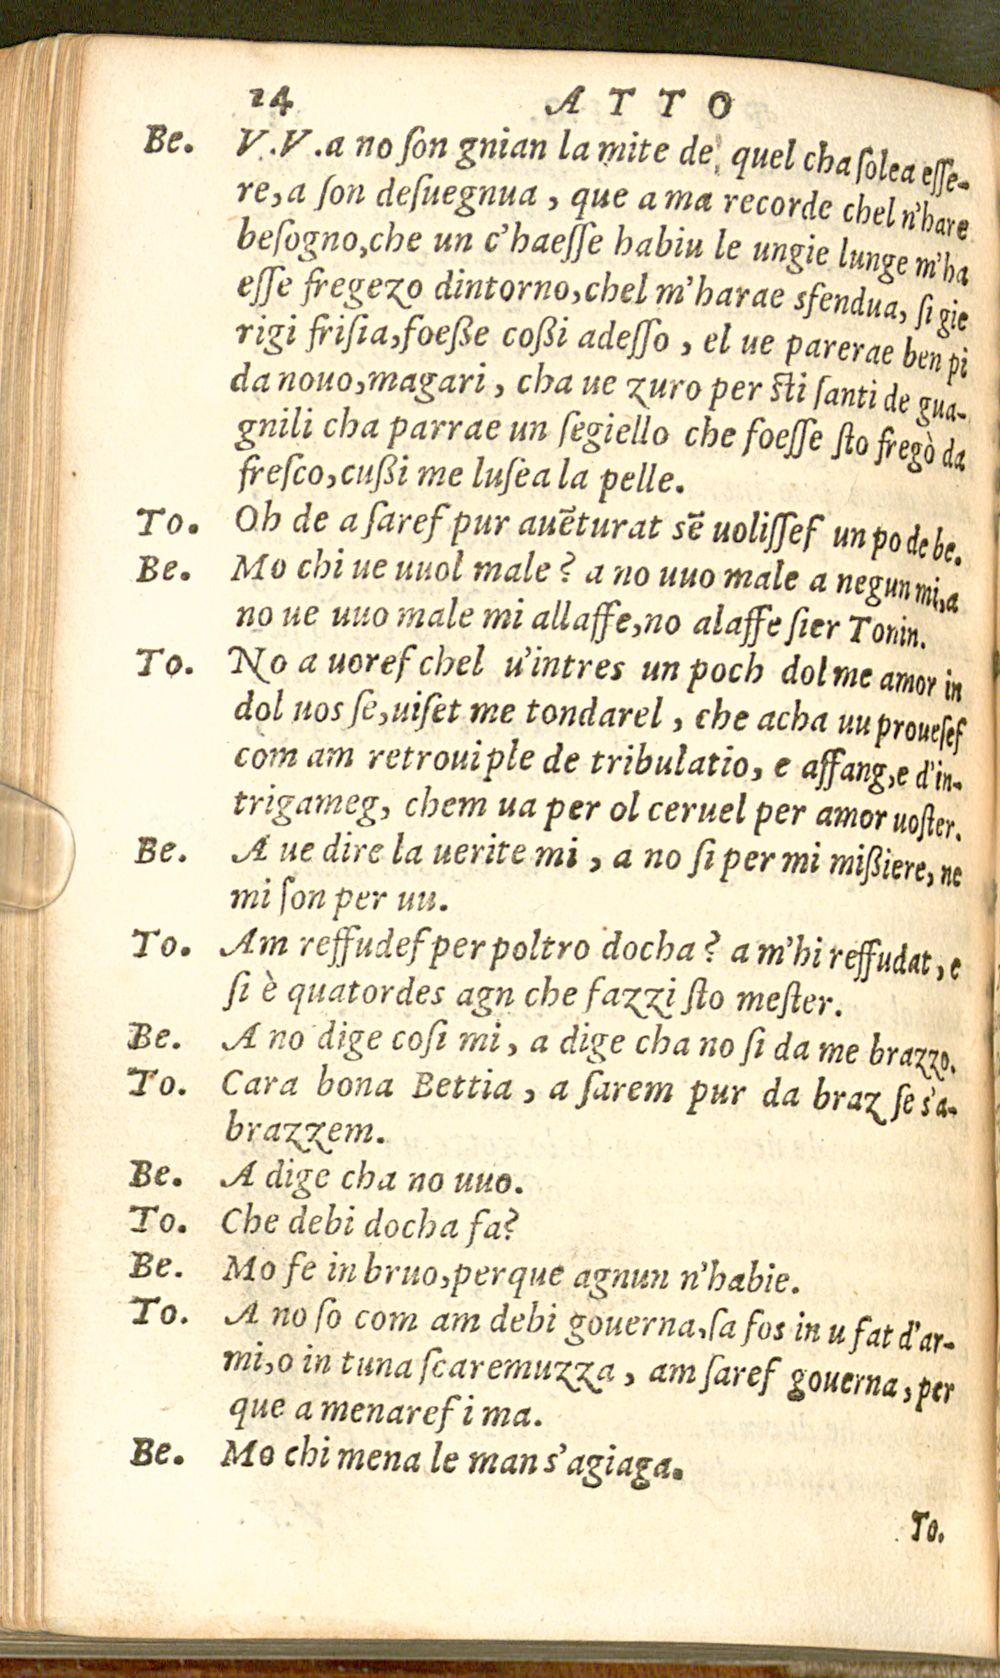 24 ATTO
Be. V.V.a no ſon gnian la mite de quel cha ſolea eſſe-
re,a ſon deſuegnua, que a ma recorde chel n'hare
beſogno,che un c'haeſſe habiu le ungie lunge m'ha
eſſe fregezo dintorno,chel m'harae sfendua, ſi gie
rigi friſia,foeße coßi adeſſo, el ue parerae ben pi
da nouo,magari, cha ue zuro per sti ſanti de gua-
gnili cha parrae un ſegiello che foeſſe ſto fregò da
freſco,cußi me luſea la pelle.
To. Oh de a ſaref pur auēturat sē uoliſſef un po de be.
Be. Mo chi ue uuol male? a no uuo male a negun mi,a
no ue uuo male mi allaffe,no alaffe ſier Tonin.
To. No a uoref chel u'intres un poch dol me amor in
dol uos ſe,uiſet me tondarel, che acha uu proueſef
com am retroui ple de tribulatio, e affang,e d'in-
trigameg, chem ua per ol ceruel per amor uoſter.
Be. A ue dire la uerite mi, a no ſi per mi mißiere, ne
mi ſon per uu.
To. Am reffudef per poltro docha? a m'hi reffudat, e
ſi è quatordes agn che fazzi ſto meſter.
Be. A no dige coſi mi, a dige cha no ſi da me brazzo.
To. Cara bona Bettia, a ſarem pur da braz ſe s'a-
brazzem.
Be. A dige cha no uuo.
To. Che debi docha fa?
Be. Mo fe in bruo,perque agnun n'habie.
To. A no ſo com am debi gouerna,ſa fos in u fat d'ar-
mi,o in tuna ſcaremuzza, am ſaref gouerna, per
que a menaref i ma.
Be. Mo chi mena le man s'agiaga.
To.